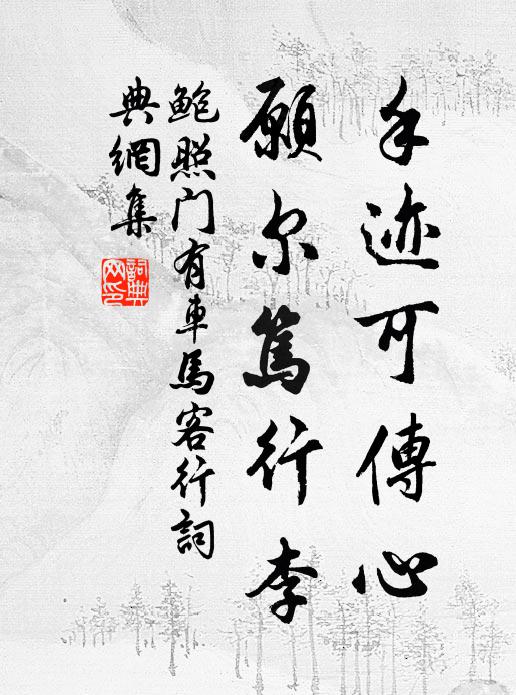 手迹可傳心
願尔篤行李
鮑照门有車馬客行詞
典網集
詞典
网印